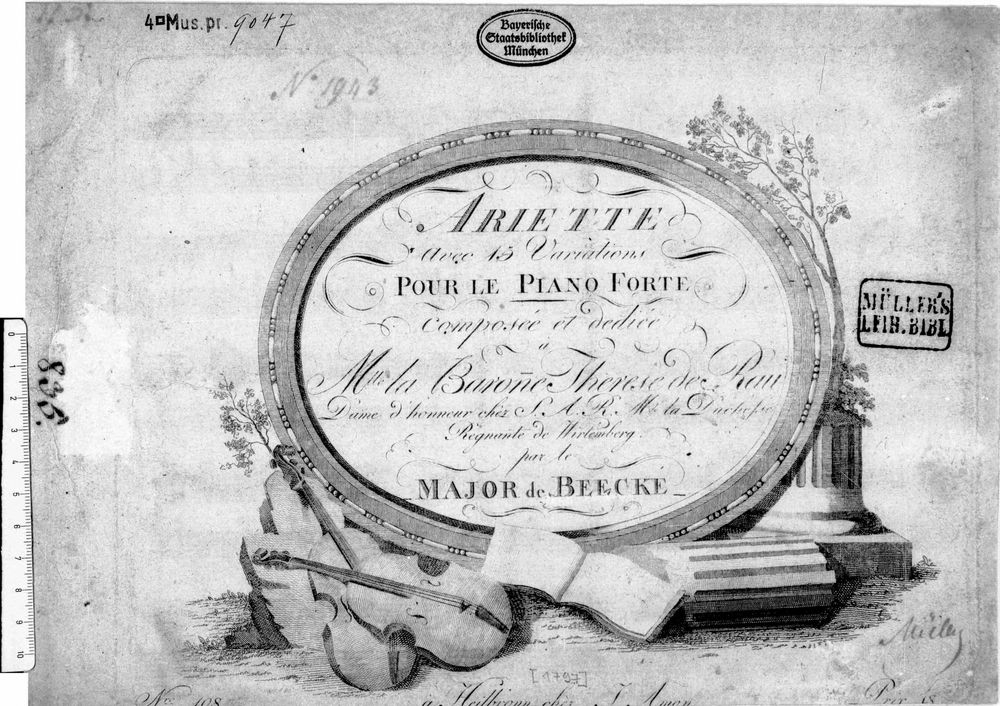 4 Mus.pr. 9047
Bayerische
Staatsbibliothek
München
No 1943
ARIETTE
Avec 15 Variations
POUR LE PIANO FORTE
composée et dediée
à
Mlle la Baroñe Therese de Rau
Dame d'honneur chez S. A. R. Mde la Duchesse
Regnante de Wirtemberg.
par le
MAJOR de BEECKE
MÜLLER'S
LEIH. BIBL
836
0 1 2 3 4 5 6 7 8 9 10
Müller
[1797]
No. 108 à Heilbronn chez J. Amon Prix 48